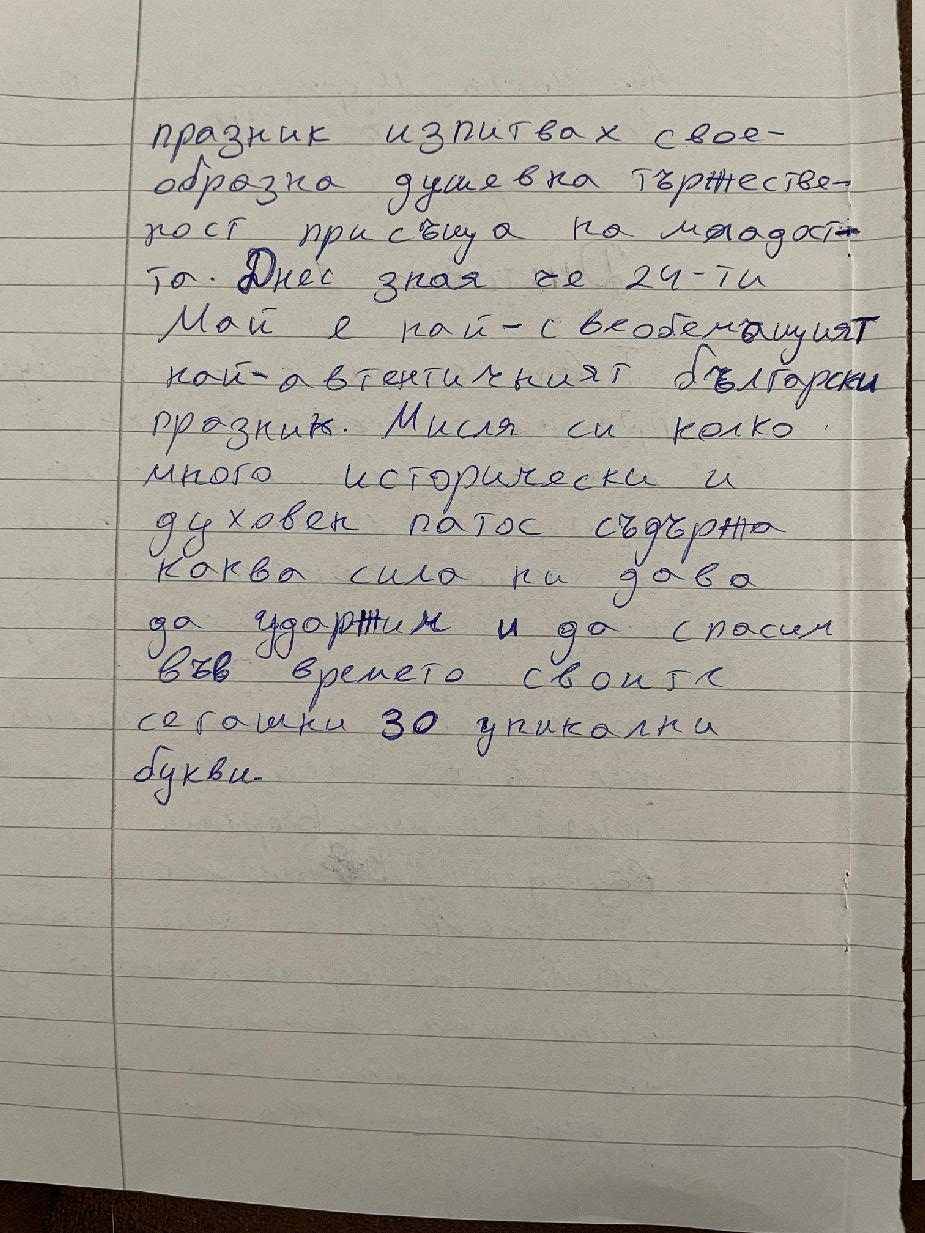 празник изпитвах свое-
образна душевна тържестве-
ност присъща на младост-
та. Днес зная че 24-ти
Май е най-свеобемащият
най-автентичният български
празник. Мисля си колко
много исторически и
духовен патос съдържа
каква сила ни дава
да удържим и да спасим
във времето своите
сегашни 30 уникални
букви.